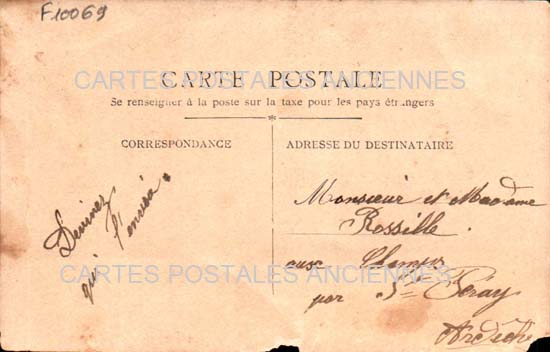 F10069
CARTE POSTALE
CARTES POSTALES ANCIENNES
Se renseigner à la poste sur la taxe pour les pays étrangers
CORRESPONDANCE
ADRESSE DU DESTINATAIRE
Devinez
qui l'envoie
Monsieur et Madame
Rossille
aux Champs
par St Péray
Ardèche
CARTES POSTALES ANCIENNES